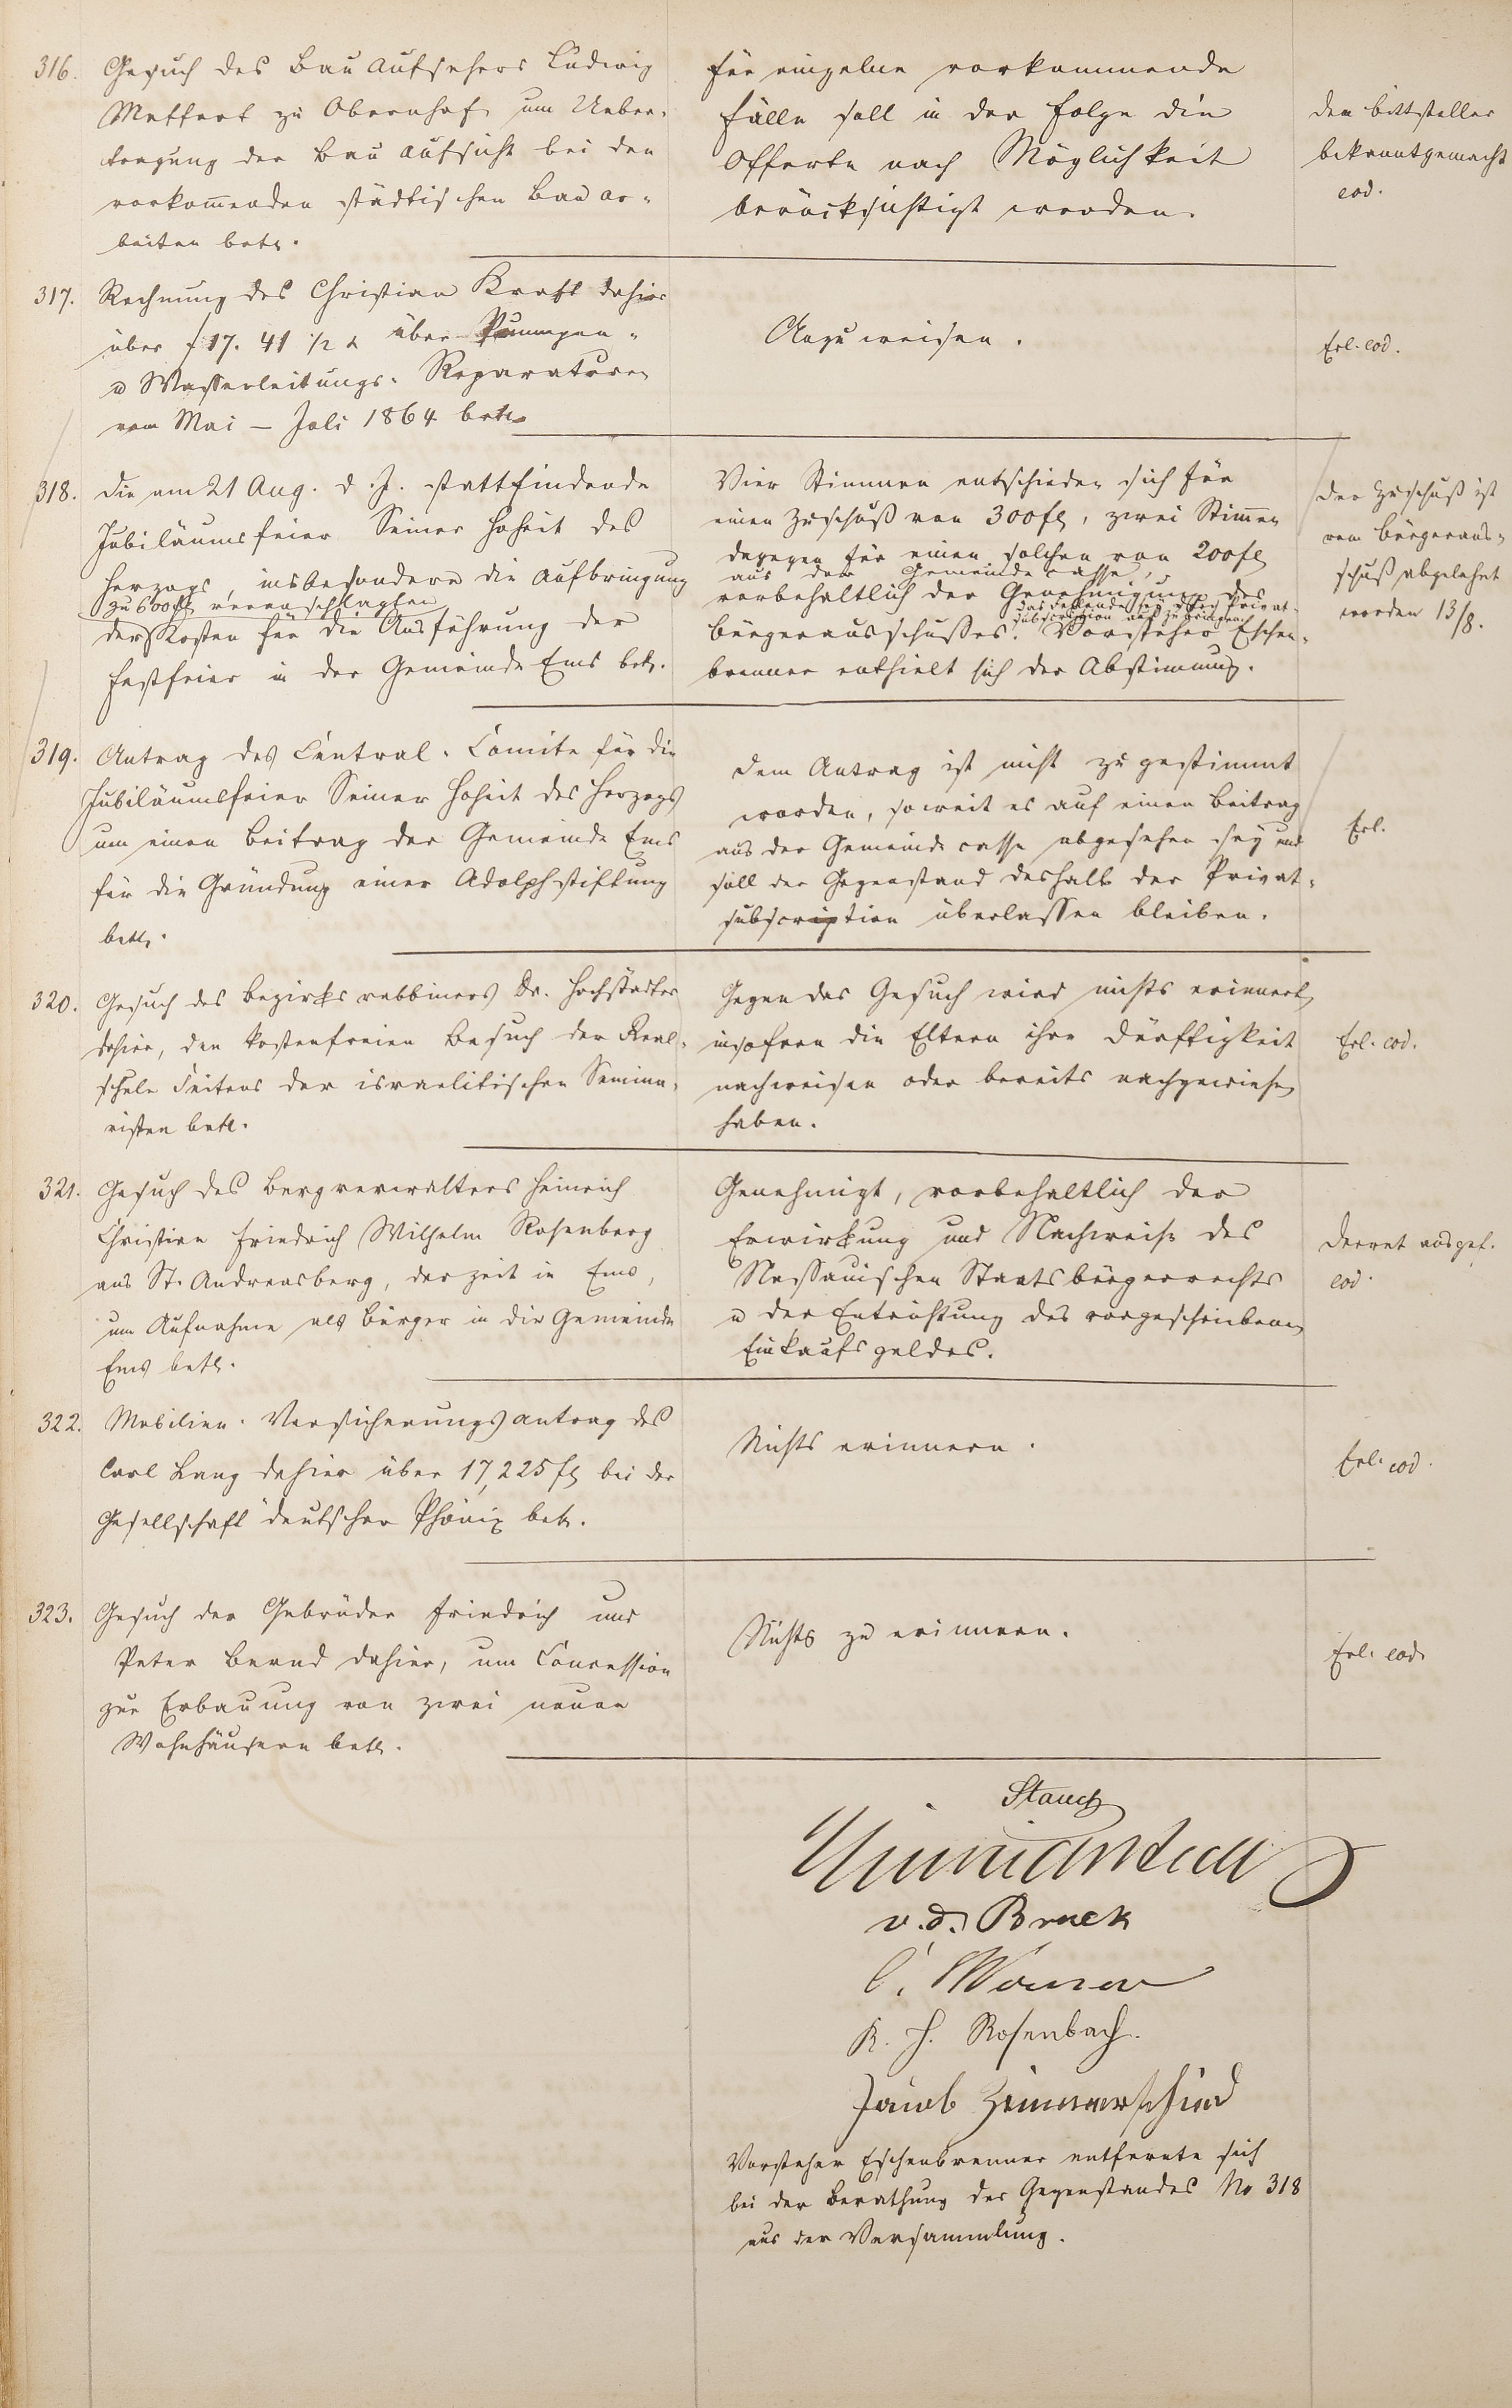 316. Gesuch des Bau Aufsehers Ludwig
Mettert zu Obernhof um Ueber-
tragung der Bau Aufsicht bei den
vorkom̄enden städtischen Bau ar-
beiten betr.
Für einzelne vorkommende
Fälle soll in der Folge die
Offerte nach Möglichkeit
berücksichtigt werden.
Dem Bittsteller
bekanntgemacht
eod.
317. Rechnung des Christian Kraft dahier
über f 17. 41 1/2 x über Pumpen-
u Wasserleitungs-Reparaturen
vom Mai – Juli 1864 betr.
Anzuweisen.
Erl. eod.
318. Die am 21 Aug. d. J. stattfindende
Jubiläumsfeier Seiner Hoheit des
Herzogs, insbesondere die Aufbringung
zu 600 fl veranschlagten
der Kosten für die Ausführung der
Festfeier in der Gemeinde Ems betr.
Vier Stimmen entschieden sich für
einen Zuschuß von 300 fl, zwei Stim̄en
dagegen für einen solchen von 200 fl
aus der Gemeindecasse,
vorbehaltlich der Genehmigung des
das Fehlende sey durch Privat-
subscription aufzubringen.
Bürgerausschußes. Vorsteher Eschen-
brenner enthielt sich der Abstimmung.
Der Zuschuß ist
vom Bürgeraus-
schuß abgelehnt
worden 13/8.
319. Antrag des Central-Comite für die
Jubiläumsfeier Seiner Hoheit des Herzogs
um einen Beitrag der Gemeinde Ems
für die Gründung einer Adolphstiftung
betr.
Dem Antrag ist nicht zugestimmt
worden, soweit es auf einen Beitrag
aus der Gemeindecasse abgesehen sey und
soll der Gegenstand deshalb der Privat-
subscription überlassen bleiben.
Erl.
320. Gesuch des Bezirksrabbiners Dr. Hochstädter
dahier, den kostenfreien Besuch der Real-
schule Seitens der israelitischen Semina-
risten betr.
Gegen das Gesuch wird nichts erinnert,
insofern die Eltern ihre Dürftigkeit
nachweisen oder bereits nachgewiesen
haben.
Erl. eod.
321. Gesuch des Bergverwalters Heinrich
Christian Friedrich Wilhelm Rosenberg
aus St. Andreasberg, derzeit in Ems,
um Aufnahme als Bürger in die Gemeinde
Ems betr.
Genehmigt, vorbehaltlich der
Erwirkung und Nachweise des
Nassauischen Staatsbürgerrechts
u der Entrichtung des vorgeschriebenen
Einkaufsgeldes.
Decret ausgef.
eod.
322. Mobilien-Versicherungsantrag des
Carl Lang dahier über 17,225 fl bei der
Gesellschaft deutscher Phönix betr.
Nichts erinnern.
Erl. eod.
323. Gesuch der Gebrüder Friedrich und
Peter Bernd dahier, um Concession
zur Erbauung von zwei neuen
Wohnhäusern betr.
Nichts zu erinnern.
Erl. eod.
Stauch
v. d. Bruck
K. H. Rosenbach.
Jacob Zimmerschied
Vorsteher Eschenbrenner entfernte sich
bei der Berathung des Gegenstandes No 318
aus der Versammlung.